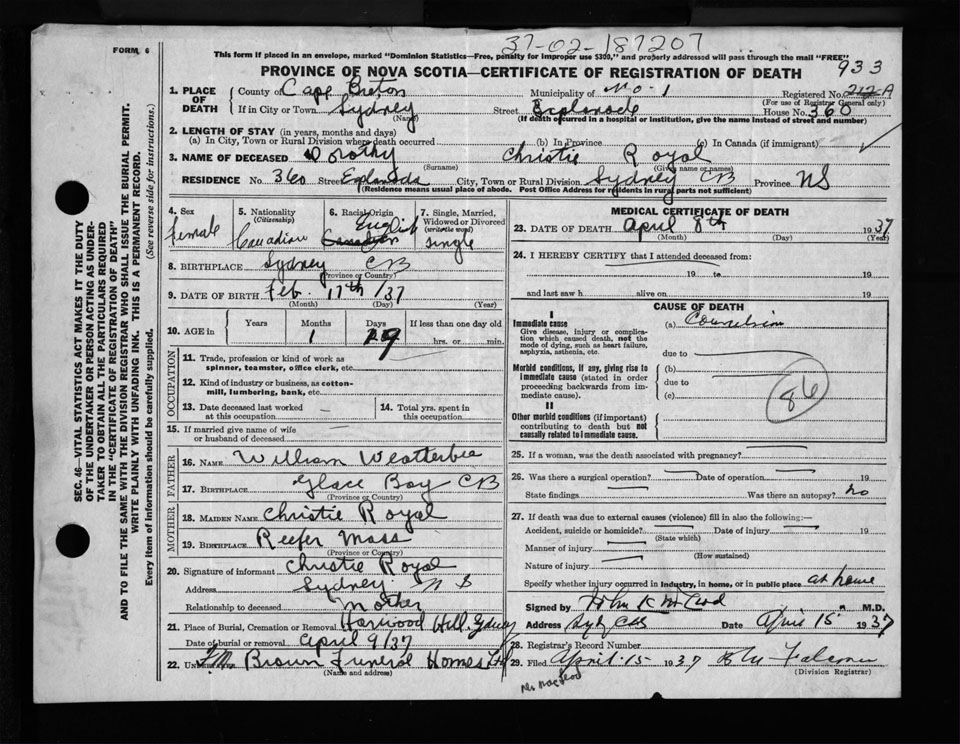 37-02-187207
FORM 6
This form if placed in an envelope, marked "Dominion Statistics—Free, penalty for improper use $300," and properly addressed will pass through the mail "FREE"
933
PROVINCE OF NOVA SCOTIA—CERTIFICATE OF REGISTRATION OF DEATH
1. PLACE OF DEATH
County of Cape Breton Municipality of No-1 Registered No. 212-A
(For use of Registrar General only)
If in City or Town Sydney Street Esplanade House No. 360
(Name) (If death occurred in a hospital or institution, give the name instead of street and number)
2. LENGTH OF STAY (in years, months and days)
(a) In City, Town or Rural Division where death occurred (b) In Province (c) In Canada (if immigrant)
3. NAME OF DECEASED Dorothy Christie Royal
(Surname) (Given name or names)
RESIDENCE No. 360 Street Esplanade City, Town or Rural Division Sydney CB Province NS
(Residence means usual place of abode. Post Office Address for residents in rural parts not sufficient)
4. Sex
female
5. Nationality
(Citizenship)
Canadian
6. Racial Origin
English
Canadian
7. Single, Married, Widowed or Divorced
(write the word)
single
8. BIRTHPLACE Sydney CB
(Province or Country)
9. DATE OF BIRTH Feb. 17th /37
(Month) (Day) (Year)
10. AGE in Years Months Days If less than one day old
1 29 hrs. or min.
OCCUPATION
11. Trade, profession or kind of work as spinner, teamster, office clerk, etc.
12. Kind of industry or business, as cotton-mill, lumbering, bank, etc.
13. Date deceased last worked at this occupation
14. Total yrs. spent in this occupation
15. If married give name of wife or husband of deceased
FATHER
16. NAME William Weatterbie
17. BIRTHPLACE Glace Bay CB
(Province or Country)
MOTHER
18. MAIDEN NAME Christie Royal
19. BIRTHPLACE Reefer Mass
(Province or Country)
20. Signature of informant Christie Royal
Address Sydney N S
Relationship to deceased Mother
21. Place of Burial, Cremation or Removal Harwood Hill, Sydney
Date of burial or removal April 9/37
22. Brown Funeral Homes Ltd
(Name and address)
MEDICAL CERTIFICATE OF DEATH
23. DATE OF DEATH April 8th 1937
(Month) (Day)
24. I HEREBY CERTIFY that I attended deceased from:
19 to 19
and last saw h alive on 19
CAUSE OF DEATH
I
Immediate cause
Give disease, injury or complication which caused death, not the mode of dying, such as heart failure, asphyxia, asthenia, etc.
(a) Convulsion
due to
Morbid conditions, if any, giving rise to immediate cause (stated in order proceeding backwards from immediate cause).
(b)
due to
(c)
86
II
Other morbid conditions (if important) contributing to death but not causally related to immediate cause.
25. If a woman, was the death associated with pregnancy?
26. Was there a surgical operation? Date of operation 19
State findings Was there an autopsy? no
27. If death was due to external causes (violence) fill in also the following:—
Accident, suicide or homicide? Date of injury 19
(State which)
Manner of injury
(How sustained)
Nature of injury
Specify whether injury occurred in industry, in home, or in public place at home
Signed by John K McLeod M.D.
Address Syd CB Date April 15" 1937
28. Registrar's Record Number
29. Filed April-15 1937 Falconer
(Division Registrar)
SEC. 46—VITAL STATISTICS ACT MAKES IT THE DUTY
OF THE UNDERTAKER OR PERSON ACTING AS UNDER-
TAKER TO OBTAIN ALL THE PARTICULARS REQUIRED
IN THE "CERTIFICATE OF REGISTRATION OF DEATH"
AND TO FILE THE SAME WITH THE DIVISION REGISTRAR WHO SHALL ISSUE THE BURIAL PERMIT.
WRITE PLAINLY WITH UNFADING INK. THIS IS A PERMANENT RECORD.
Every item of information should be carefully supplied. (See reverse side for instructions.)